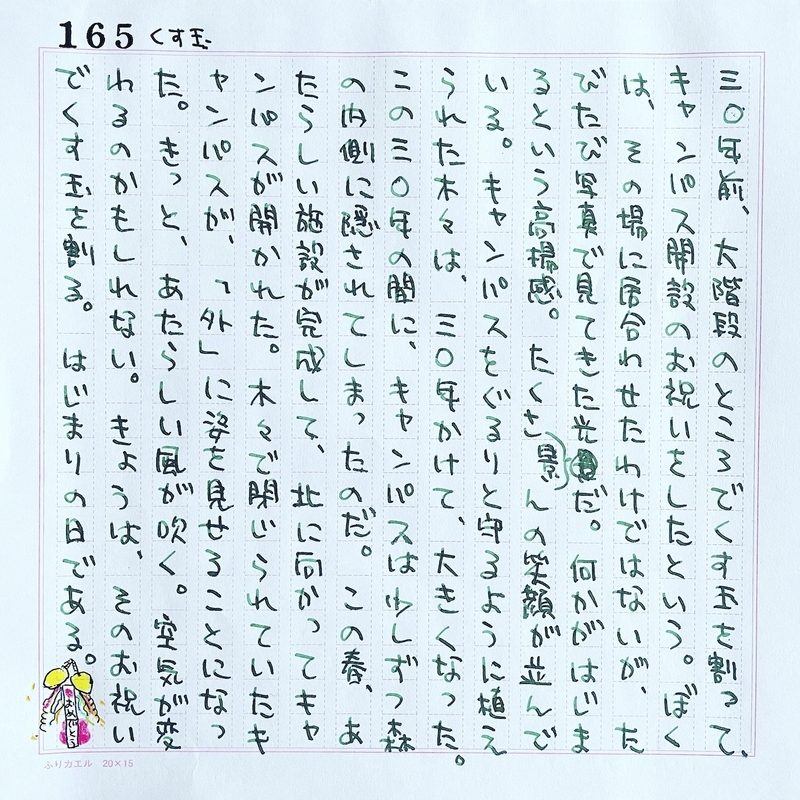 165 くす玉
三〇年前、大階段のところでくす玉を割って、
キャンパス開設のお祝いをしたという。ぼく
は、その場に居合わせたわけではないが、た
びたび写真で見てきた光景だ。何かがはじま
るという高揚感。たくさんの笑顔が並んで
いる。キャンパスをぐるりと守るように植え
られた木々は、三〇年かけて、大きくなった。
この三〇年の間に、キャンパスは少しずつ森
の内側に隠されてしまったのだ。この春、あ
たらしい施設が完成して、北に向かってキャ
ンパスが開かれた。木々で閉じられていたキ
ャンパスが、「外」に姿を見せることになっ
た。きっと、あたらしい風が吹く。空気が変
わるのかもしれない。きょうは、そのお祝い
でくす玉を割る。はじまりの日である。
おめでとう
ふりカエル 20×15